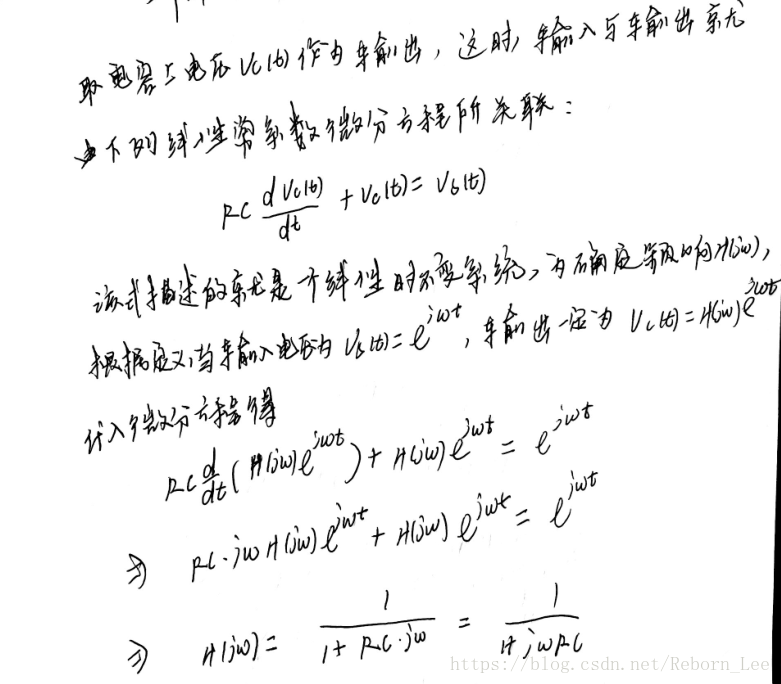 取电容上电压 Vc(t) 作为输出，这时，输入与输出就
由下列线性常系数微分方程所关联：
RC dVc(t)/dt + Vc(t) = Vs(t)
该式描述的就是一个线性时不变系统，为确定频响H(jw)，
根据定义，当输入电压为 Vs(t) = e^{jwt}，输出一定为 Vc(t) = H(jw)e^{jwt}
代入微分方程得
RC d/dt (H(jw)e^{jwt}) + H(jw)e^{jwt} = e^{jwt}
⇒ RC·jw H(jw)e^{jwt} + H(jw)e^{jwt} = e^{jwt}
⇒ H(jw) = 1/(1+RC·jw) = 1/(1+jwRC)
https://blog.csdn.net/Reborn_Lee